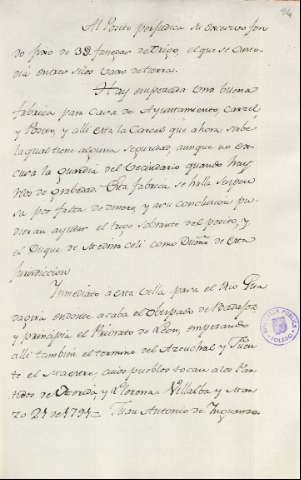 Al Posito perjudica su excesivo fon
do fixo de 3@ fanegas de trigo, el que se custo
dia en tres silos vajo de tierra.
Hay empezada una buena
fabrica para Casa de Ayuntamiento, Carcel
y Posito, y alli esta la Carcel que ahora sirve
la qual tiene alguna seguridad aunque no ex
cusa la guardia del Vecindario quando hay
Reos de gravedad. Esta fabrica se halla suspen
sa por falta de dinero, y a su conclusion pu
dieran ayudar el trigo sobrante del posito, y
el Duque de Medina celi como Dueño de esta
Jurisdiccion
Inmediato à esta Villa para el Rio Gua
dagira endonde acaba el Obispado de Badajoz
y principia el Priorato de Leon, empezando
alli tambien el termino del Azeuchal y Fuen
te el Maestre, cuios pueblos tocan a los Par
tidos de Merida y Llerena Villalba y Mar
zo 21 de 1791= Juan Antonio de Ynguanzo
TOLEDO